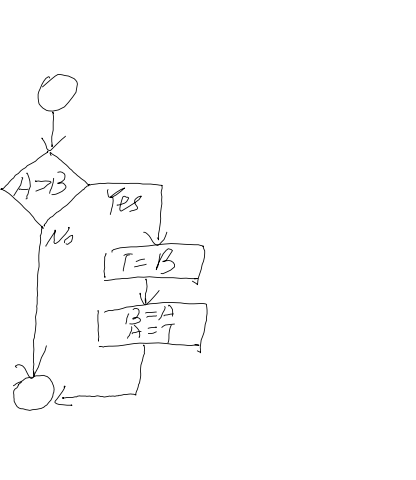 A>B
Yes
No
T=B
B=A
A=T